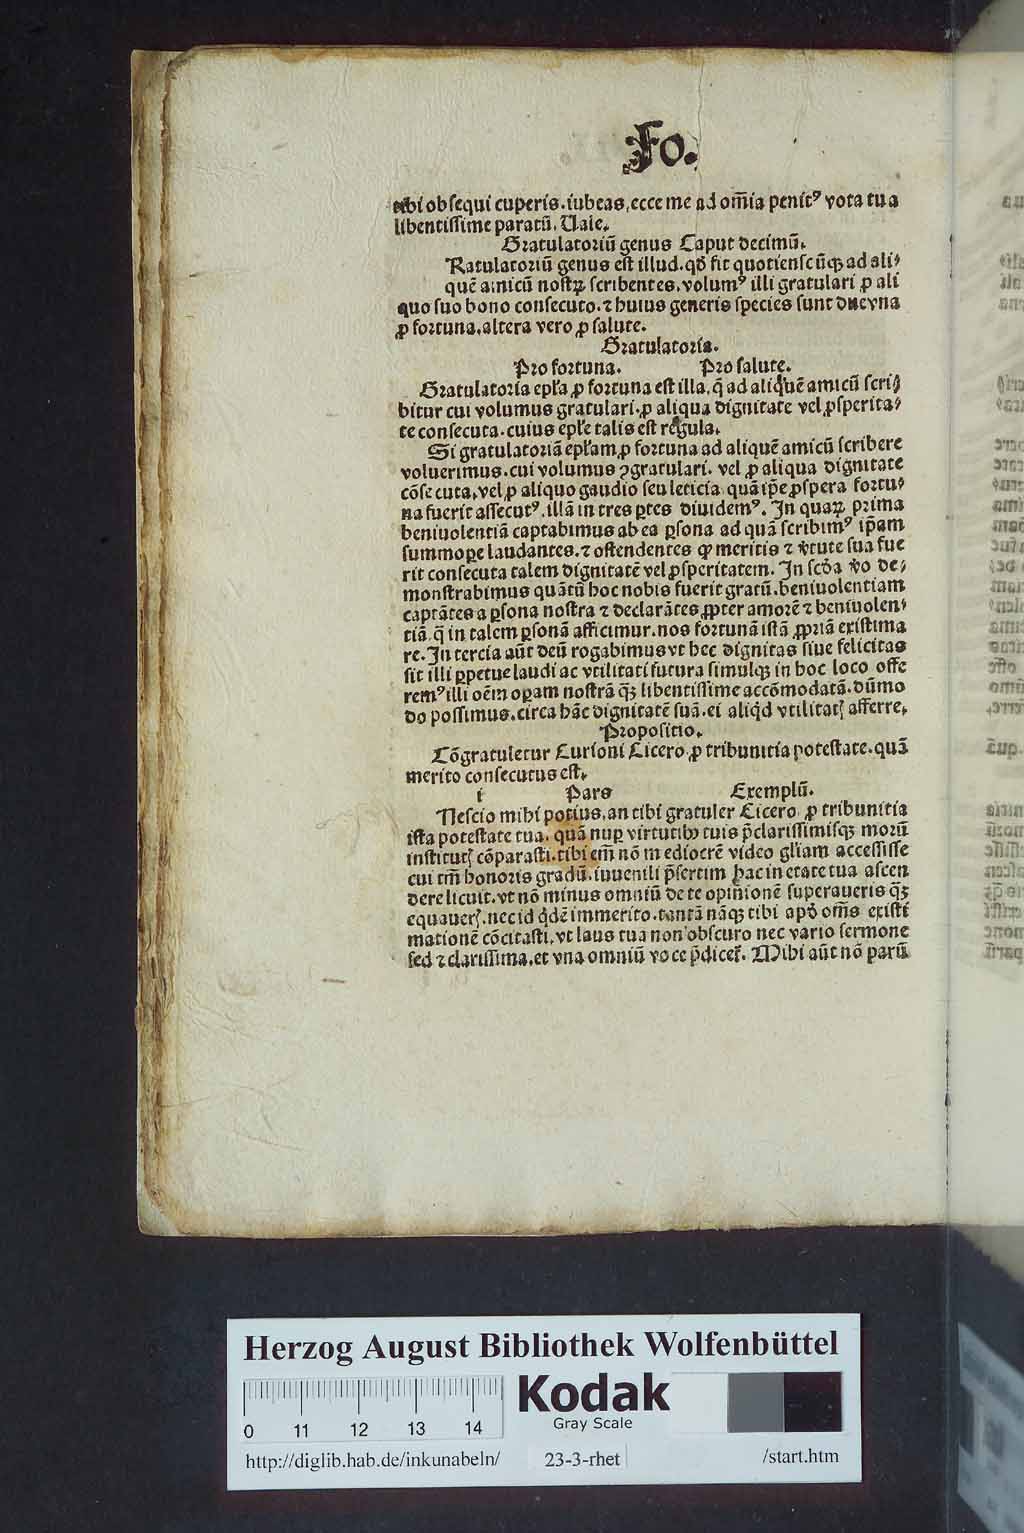 Fo.
tibi obsequi cuperis.iubeas,ecce me ad om̄ia penitꝰ vota tua
libentissime paratū. Vale.
Gratulatoriū genus Caput decimū.
Ratulatoriū genus est illud.qđ fit quotienscūqꝫ ad ali⸗
quē amicū nostrꝝ scribentes.volumꝰ illi gratulari ꝓ ali
quo suo bono consecuto.⁊ huius generis species sunt due vna
ꝓ fortuna.altera vero ꝓ salute.
Gratulatoria.
Pro fortuna. Pro salute.
Gratulatoria epľa ꝓ fortuna est illa.q̄ ad aliquē amicū scri⸗
bitur cui volumus gratulari.ꝓ aliqua dignitate vel ꝓsperita⸗
te consecuta.cuius epľe talis est regula.
Si gratulatoriā epľam ꝓ fortuna ad aliquē amicū scribere
voluerimus.cui volumus ꝯgratulari. vel ꝓ aliqua dignitate
cōsecuta.vel ꝓ aliquo gaudio seu leticia quā ip̄e ꝓspera fortu⸗
na fuerit assecutꝰ.illā in tres ꝑtes diuidemꝰ. In quaꝝ prima
beniuolentiā captabimus ab ea ꝑsona ad quā scribimꝰ ip̄am
summoꝑe laudantes.⁊ ostendentes ꝙ meritis ⁊ v̄tute sua fue
rit consecuta talem dignitatē vel ꝓsperitatem. In scđa v̄o de⸗
monstrabimus quātū hoc nobis fuerit gratū.beniuolentiam
captātes a ꝑsona nostra ⁊ declarātes ꝓpter amorē ⁊ beniuolen⸗
tiā q̄ in talem ꝑsonā afficimur.nos fortunā istā ꝓpriā existima
re. In tercia aūt deū rogabimus vt hec dignitas siue felicitas
sit illi ꝑpetue laudi ac vtilitati futura simulqꝫ in hoc loco offe
remꝰ illi oēm oꝑam nostrā q̄ꝫ libentissime accōmodatā.dūmo
do possimus.circa hāc dignitatē suā.ei aliqđ vtilitatꝭ afferre.
Propositio.
Cōgratuletur Curioni Cicero ꝓ tribunitia potestate.quā
merito consecutus est.
i Pars Exemplū.
Nescio mihi potius.an tibi gratuler Cicero ꝓ tribunitia
ista potestate tua. quā nuꝑ virtutibꝰ tuis p̄clarissimisqꝫ morū
institutꝭ cōparasti.tibi em̄ nō mediocrē video gľiam accessisse
cui tm̄ honoris gradū.iuuenili p̄sertim hac in etate tua ascen
dere licuit.vt nō minus omniū de te opinionē superaueris q̄ꝫ
equauerꝭ.nec id qdē immerito.tantā nāqꝫ tibi apđ om̄s existi
mationē cōcitasti.vt laus tua non obscuro nec vario sermone
sed ⁊ clarissima.et vna omniū voce p̄diceť. Mihi aūt nō parū
Herzog August Bibliothek Wolfenbüttel
Kodak
Gray Scale
0 11 12 13 14
http://diglib.hab.de/inkunabeln/ 23-3-rhet /start.htm